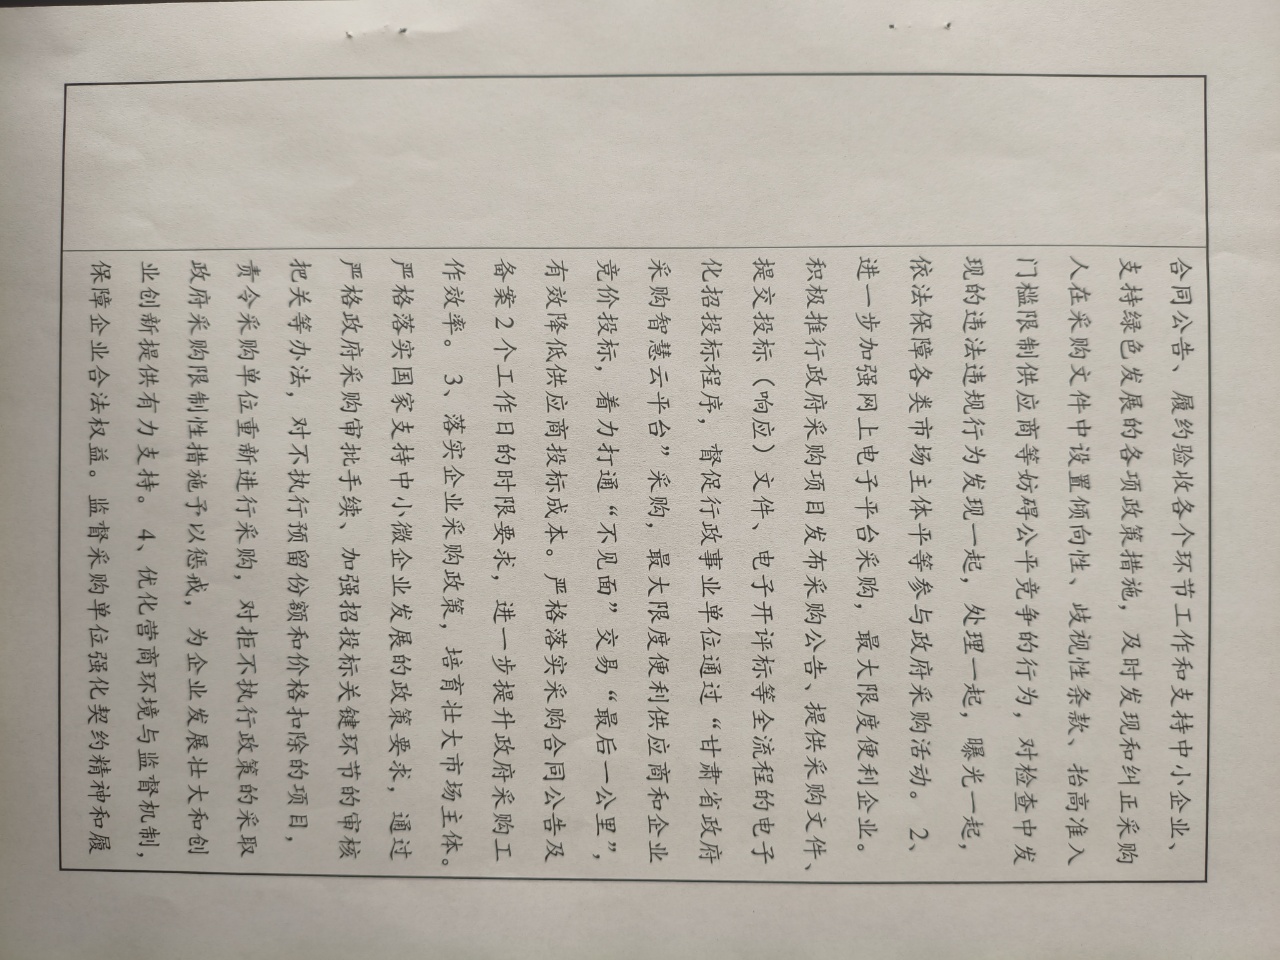 合同公告、履约验收各个环节工作和支持中小企业、
支持绿色发展的各项政策措施，及时发现和纠正采购
人在采购文件中设置倾向性、歧视性条款、抬高准入
门槛限制供应商等妨碍公平竞争的行为，对检查中发
现的违法违规行为发现一起，处理一起，曝光一起，
依法保障各类市场主体平等参与政府采购活动。2、
进一步加强网上电子平台采购，最大限度便利企业。
积极推行政府采购项目发布采购公告、提供采购文件、
提交投标（响应）文件、电子开评标等全流程的电子
化招投标程序，督促行政事业单位通过“甘肃省政府
采购智慧云平台”采购，最大限度便利供应商和企业
竞价投标，着力打通“不见面”交易“最后一公里”，
有效降低供应商投标成本。严格落实采购合同公告及
备案2个工作日的时限要求，进一步提升政府采购工
作效率。3、落实企业采购政策，培育壮大市场主体。
严格落实国家支持中小微企业发展的政策要求，通过
严格政府采购审批手续、加强招投标关键环节的审核
把关等办法，对不执行预留份额和价格扣除的项目，
责令采购单位重新进行采购，对拒不执行政策的采取
政府采购限制性措施予以惩戒，为企业发展壮大和创
业创新提供有力支持。4、优化营商环境与监督机制，
保障企业合法权益。监督采购单位强化契约精神和履